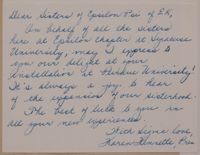 Dear Sisters of Epsilon Psi of ΣK,
On behalf of all the sisters
here at Epsilon chapter at Syracuse
University, may I express to
you our delight at your
installation at Purdue University!
It's always a joy to hear
of the expansion of our sisterhood.
The best of luck to you in
all your new experiences.
With Sigma love,
Karen